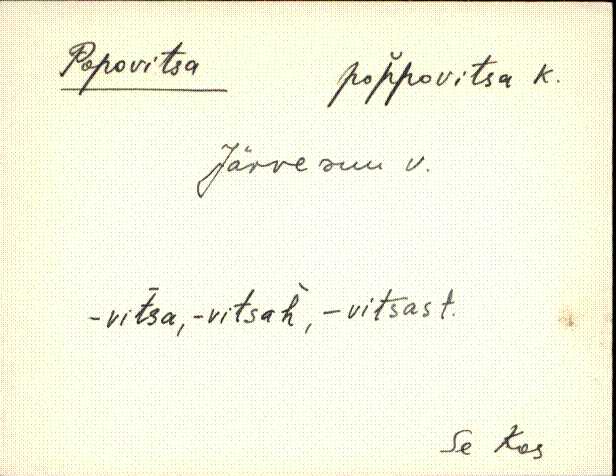 Popovitsa pop̆povitsa k.
Järvesuu v.
-vit̄sa, -vitsah̀, -vitsast.
Se Kos